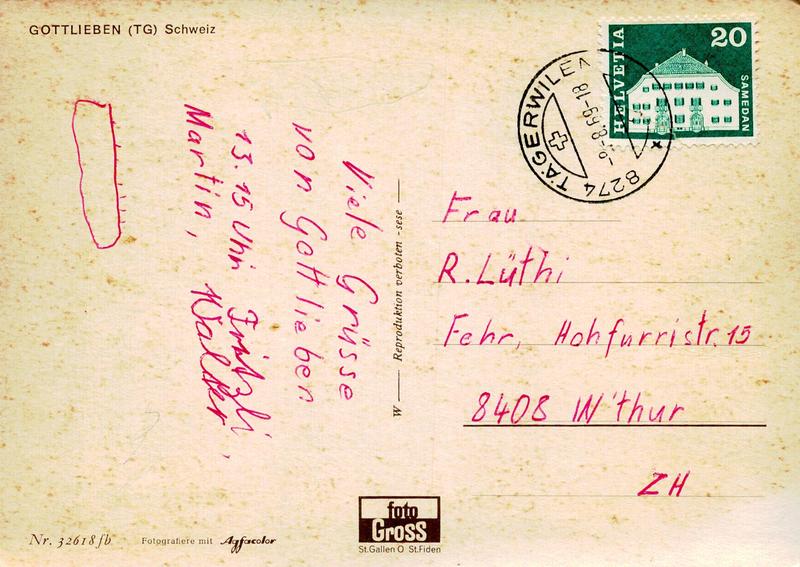 GOTTLIEBEN (TG) Schweiz
Viele Grüsse
von Gottlieben
13.15 Uhr Fritzli,
Martin, Walter
W — Reproduktion verboten - sese —
HELVETIA
20
SAMEDAN
8274 TÄGERWILEN
-6-8.69-18
Frau
R. Lüthi
Fehr, Hohfurristr. 15
8408 W'thur
ZH
Nr. 32618 fb
Fotografiere mit Agfacolor
foto
Gross
St.Gallen O St.Fiden